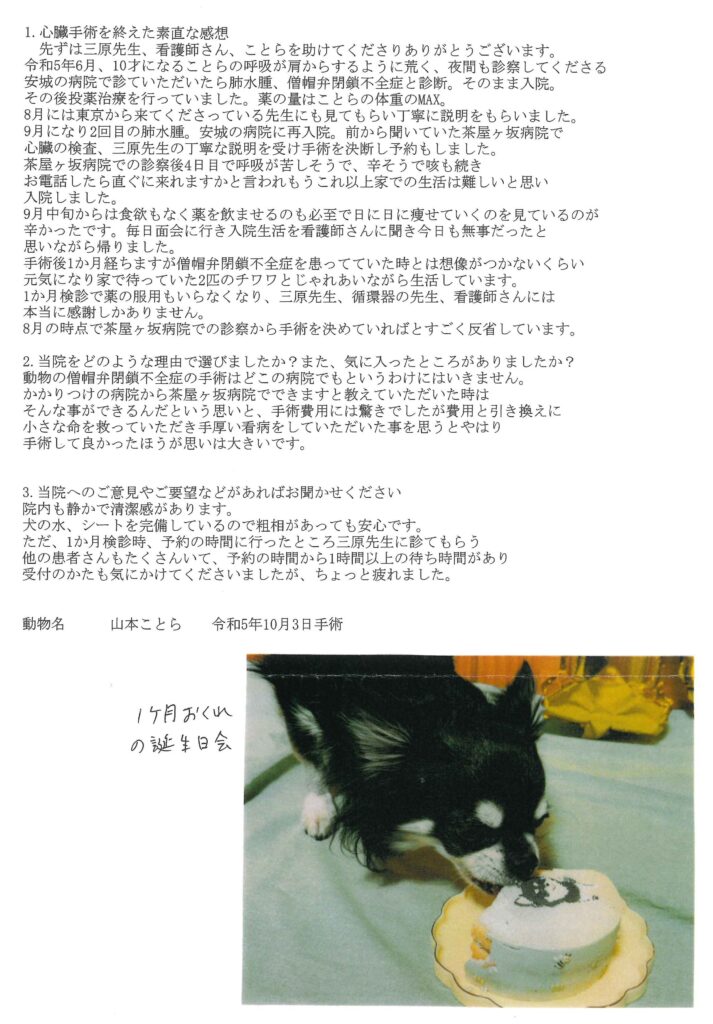 1.心臓手術を終えた素直な感想
先ずは三原先生、看護師さん、ことらを助けてくださりありがとうございます。
令和5年6月、10才になることらの呼吸が肩からするように荒く、夜間も診察してくださる
安城の病院で診ていただいたら肺水腫、僧帽弁閉鎖不全症と診断。そのまま入院。
その後投薬治療を行っていました。薬の量はことらの体重のMAX。
8月には東京から来てくださっている先生にも見てもらい丁寧に説明をもらいました。
9月になり2回目の肺水腫。安城の病院に再入院。前から聞いていた茶屋ヶ坂病院で
心臓の検査、三原先生の丁寧な説明を受け手術を決断し予約もしました。
茶屋ヶ坂病院での診察後4日目で呼吸が苦しそうで、辛そうで咳も続き
お電話したら直ぐに来れますかと言われもうこれ以上家での生活は難しいと思い
入院しました。
9月中旬からは食欲もなく薬を飲ませるのも必至で日に日に痩せていくのを見ているのが
辛かったです。毎日面会に行き入院生活を看護師さんに聞き今日も無事だったと
思いながら帰りました。
手術後1か月経ちますが僧帽弁閉鎖不全症を患ってていた時とは想像がつかないくらい
元気になり家で待っていた2匹のチワワとじゃれあいながら生活しています。
1か月検診で薬の服用もいらなくなり、三原先生、循環器の先生、看護師さんには
本当に感謝しかありません。
8月の時点で茶屋ヶ坂病院での診察から手術を決めていればとすごく反省しています。
2.当院をどのような理由で選びましたか？また、気に入ったところがありましたか？
動物の僧帽弁閉鎖不全症の手術はどこの病院でもというわけにはいきません。
かかりつけの病院から茶屋ヶ坂病院でできますと教えていただいた時は
そんな事ができるんだという思いと、手術費用には驚きでしたが費用と引き換えに
小さな命を救っていただき手厚い看病をしていただいた事を思うとやはり
手術して良かったほうが思いは大きいです。
3.当院へのご意見やご要望などがあればお聞かせください
院内も静かで清潔感があります。
犬の水、シートを完備しているので粗相があっても安心です。
ただ、1か月検診時、予約の時間に行ったところ三原先生に診てもらう
他の患者さんもたくさんいて、予約の時間から1時間以上の待ち時間があり
受付のかたも気にかけてくださいましたが、ちょっと疲れました。
動物名　　　山本ことら　　令和5年10月3日手術
1ヶ月おくれ
の誕生日会